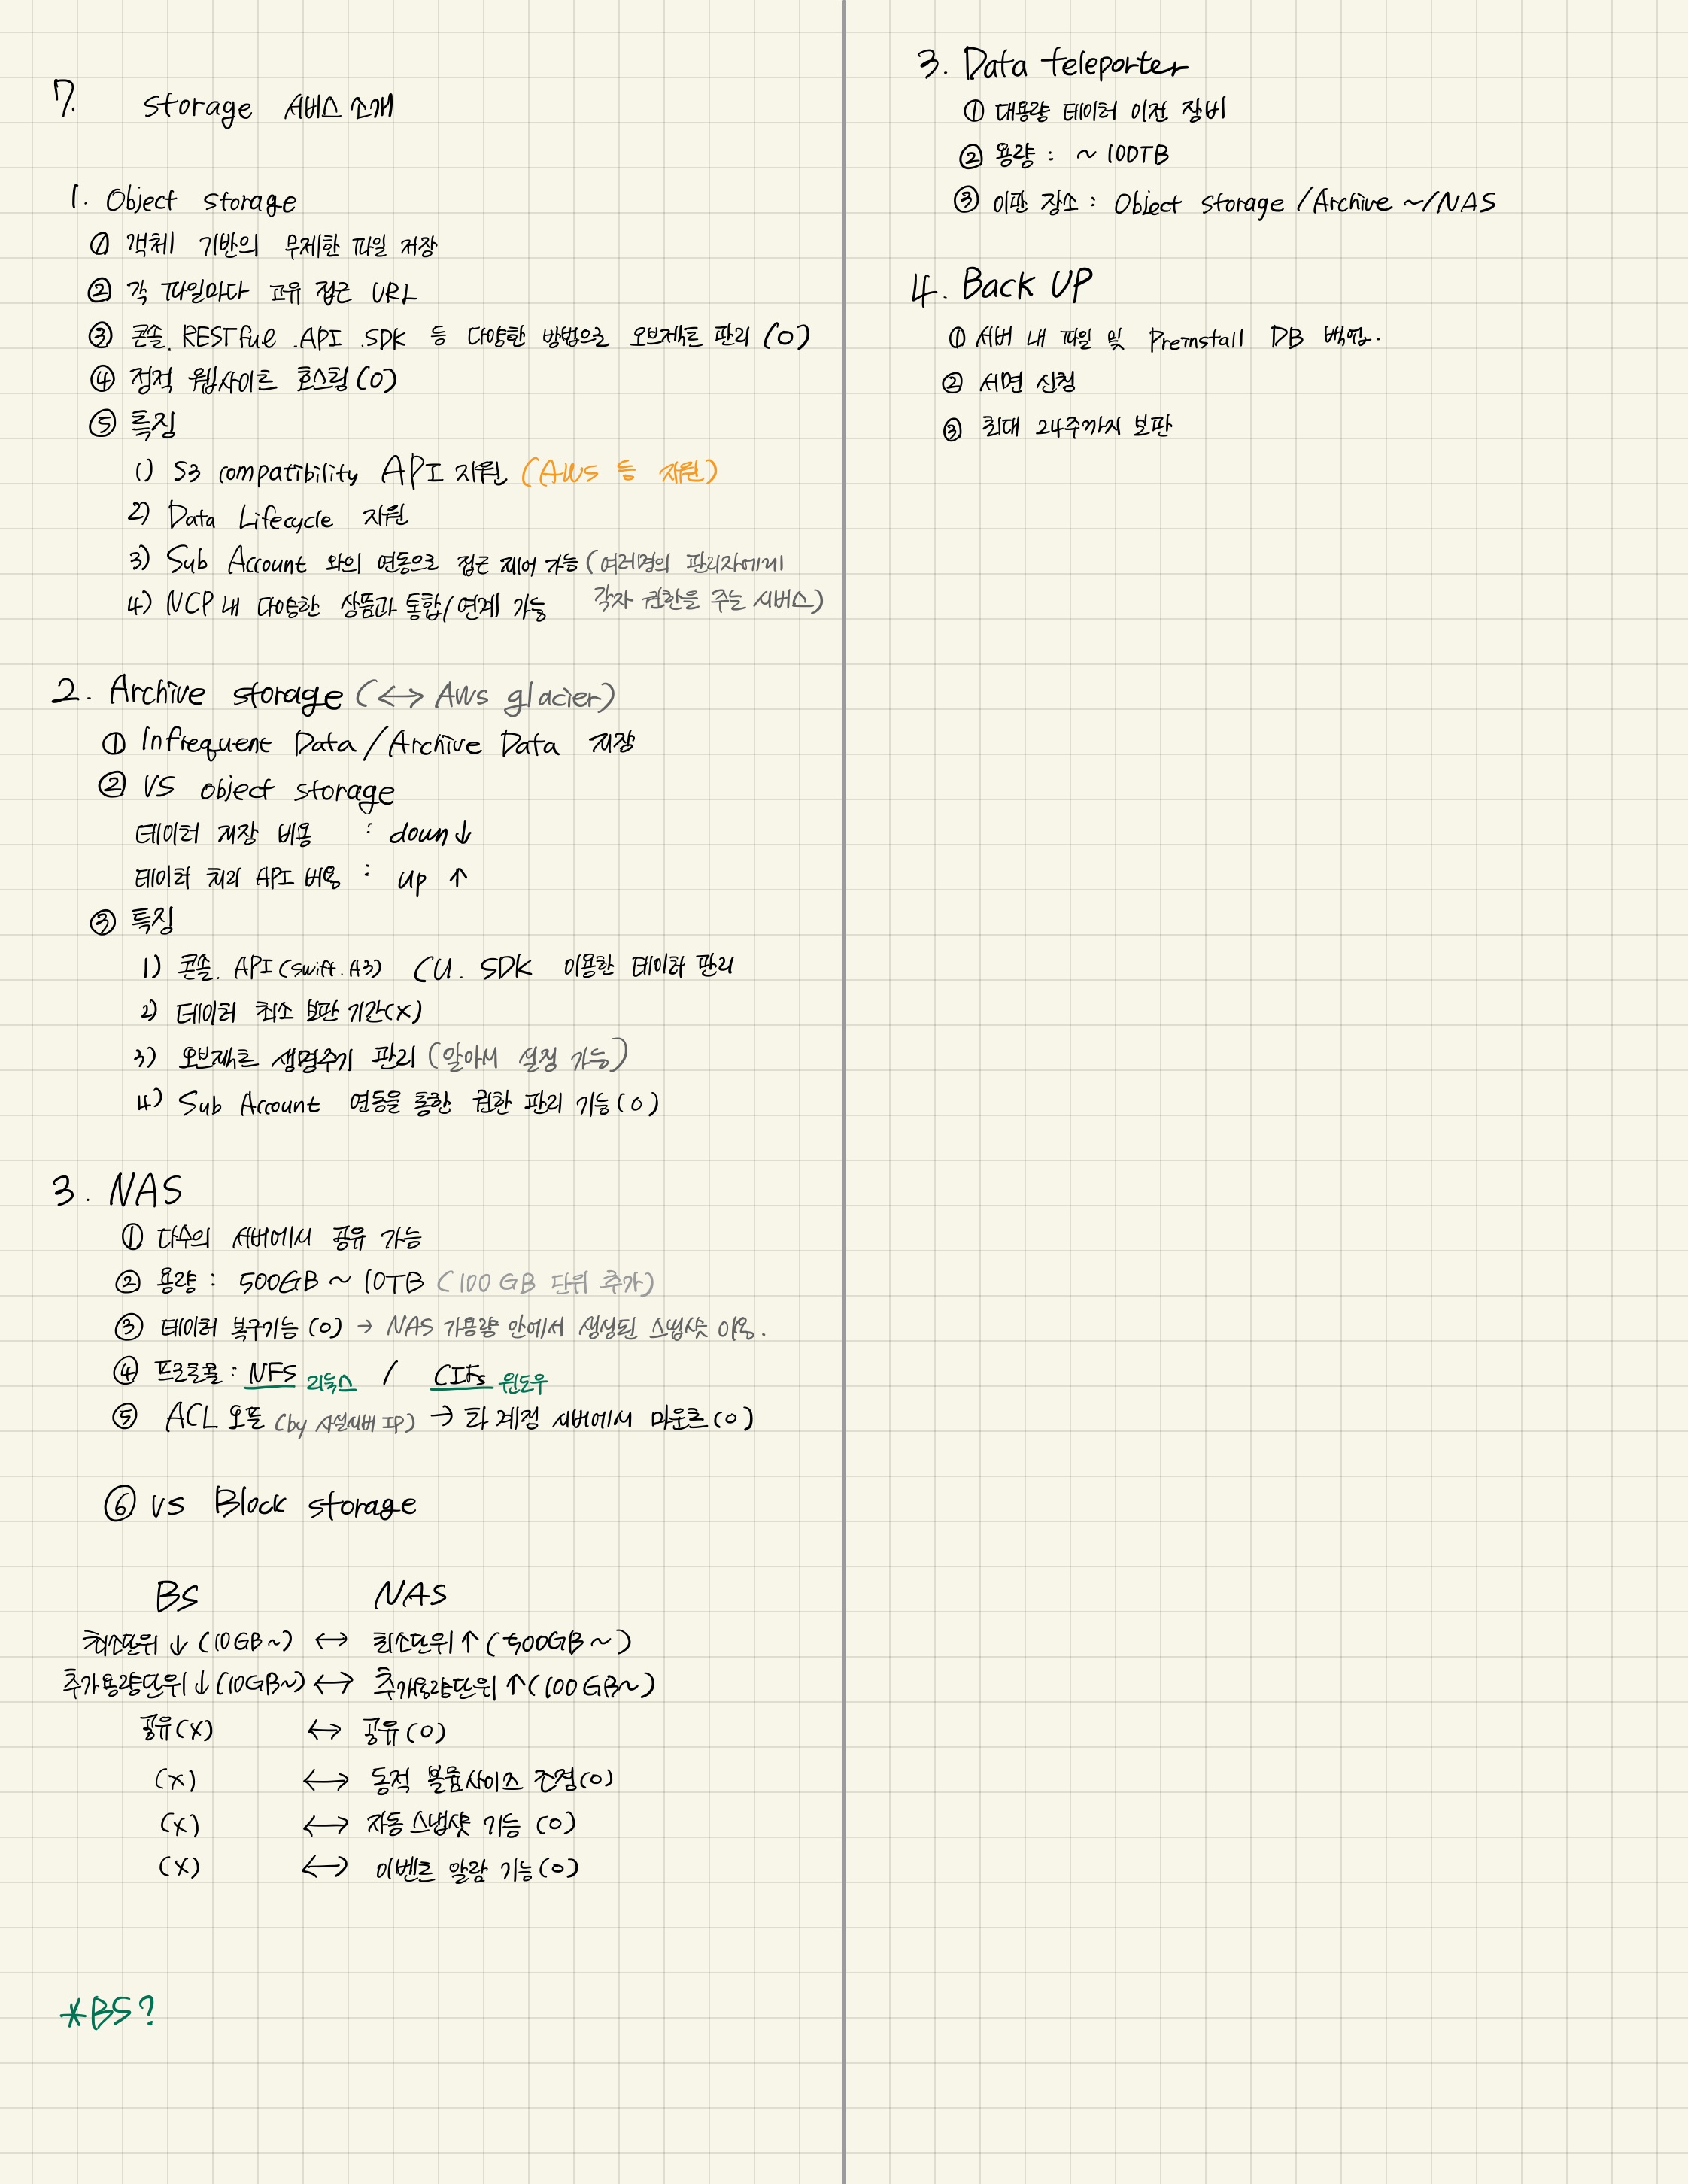 7. storage 서비스 소개
1. Object storage
① 객체 기반의 무제한 파일 저장
② 각 파일마다 고유 접근 URL
③ 콘솔. RESTful .API .SDK 등 다양한 방법으로 오브젝트 관리 (O)
④ 정적 웹사이트 호스팅(O)
⑤ 특징
1) S3 compatibility API 지원 (AWS 등 지원)
2) Data Lifecycle 지원
3) Sub Account 와의 연동으로 접근 제어 가능 (여러명의 관리자에게
각자 권한을 주는 서비스)
4) NCP 내 다양한 상품과 통합/연계 가능
2. Archive storage (↔ AWS glacier)
① Infrequent Data/Archive Data 저장
② VS object storage
데이터 저장 비용 : down↓
데이터 처리 API 비용 : up ↑
③ 특징
1) 콘솔. API (swift. A3) CLI. SDK 이용한 데이터 관리
2) 데이터 최소 보관 기간(X)
3) 오브젝트 생명주기 관리 (알아서 설정 가능)
4) Sub Account 연동을 통한 권한 관리 기능(O)
3. NAS
① 다수의 서버에서 공유 가능
② 용량 : 500GB ~ 10TB (100 GB 단위 추가)
③ 데이터 복구기능 (O) → NAS 가용량 안에서 생성된 스냅샷 이용.
④ 프로토콜 : NFS 리눅스 / CIFs 윈도우
⑤ ACL 오픈 (by 사설서버 IP) → 타 계정 서버에서 마운트(O)
⑥ vs Block storage
BS NAS
최소단위 ↓ (10GB~) ↔ 최소단위 ↑ (500GB ~)
추가용량단위 ↓ (10GB~) ↔ 추가용량단위 ↑ (100GB~)
공유(X) ↔ 공유(O)
(X) ↔ 동적 볼륨사이즈 조정(O)
(X) ↔ 자동 스냅샷 기능 (O)
(X) ↔ 이벤트 알람 기능(O)
*BS?
3. Data teleporter
① 대용량 데이터 이전 장비
② 용량 : ~ 100TB
③ 이관 장소 : Object storage /Archive ~/NAS
4. Back UP
① 서버 내 파일 및 Preinstall DB 백업.
② 서면 신청
③ 최대 24주까지 보관